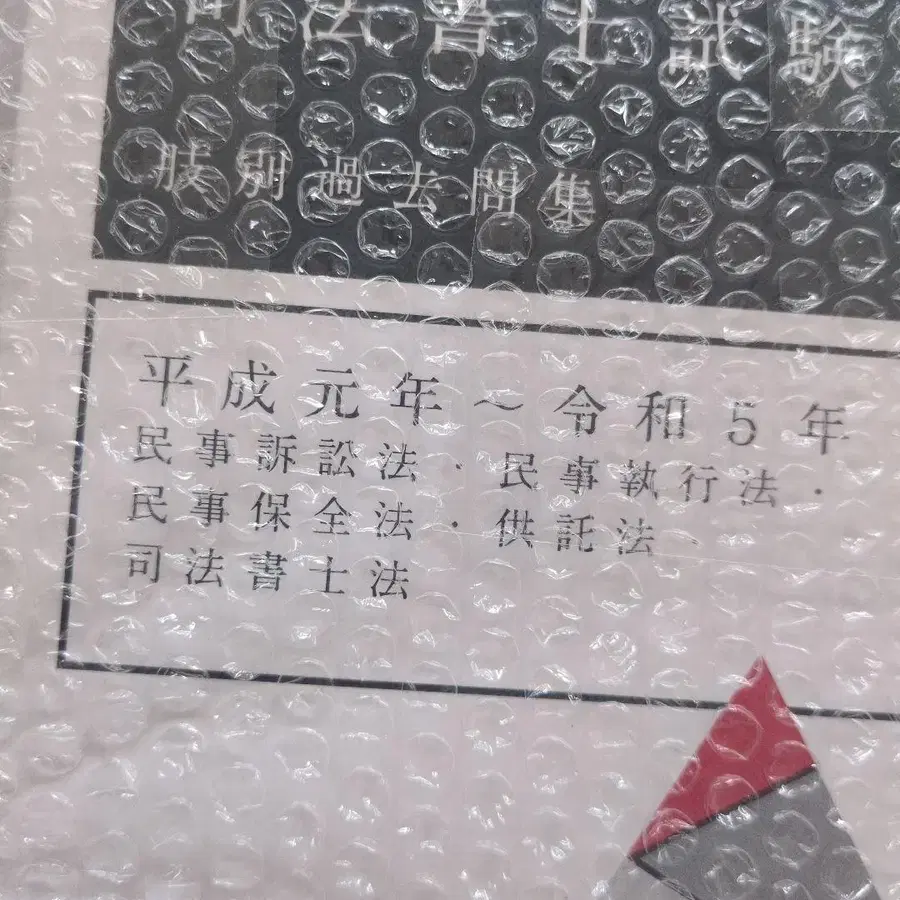 司法書士試験
肢別過去問集
平成元年～令和5年
民事訴訟法・民事執行法・
民事保全法・供託法
司法書士法